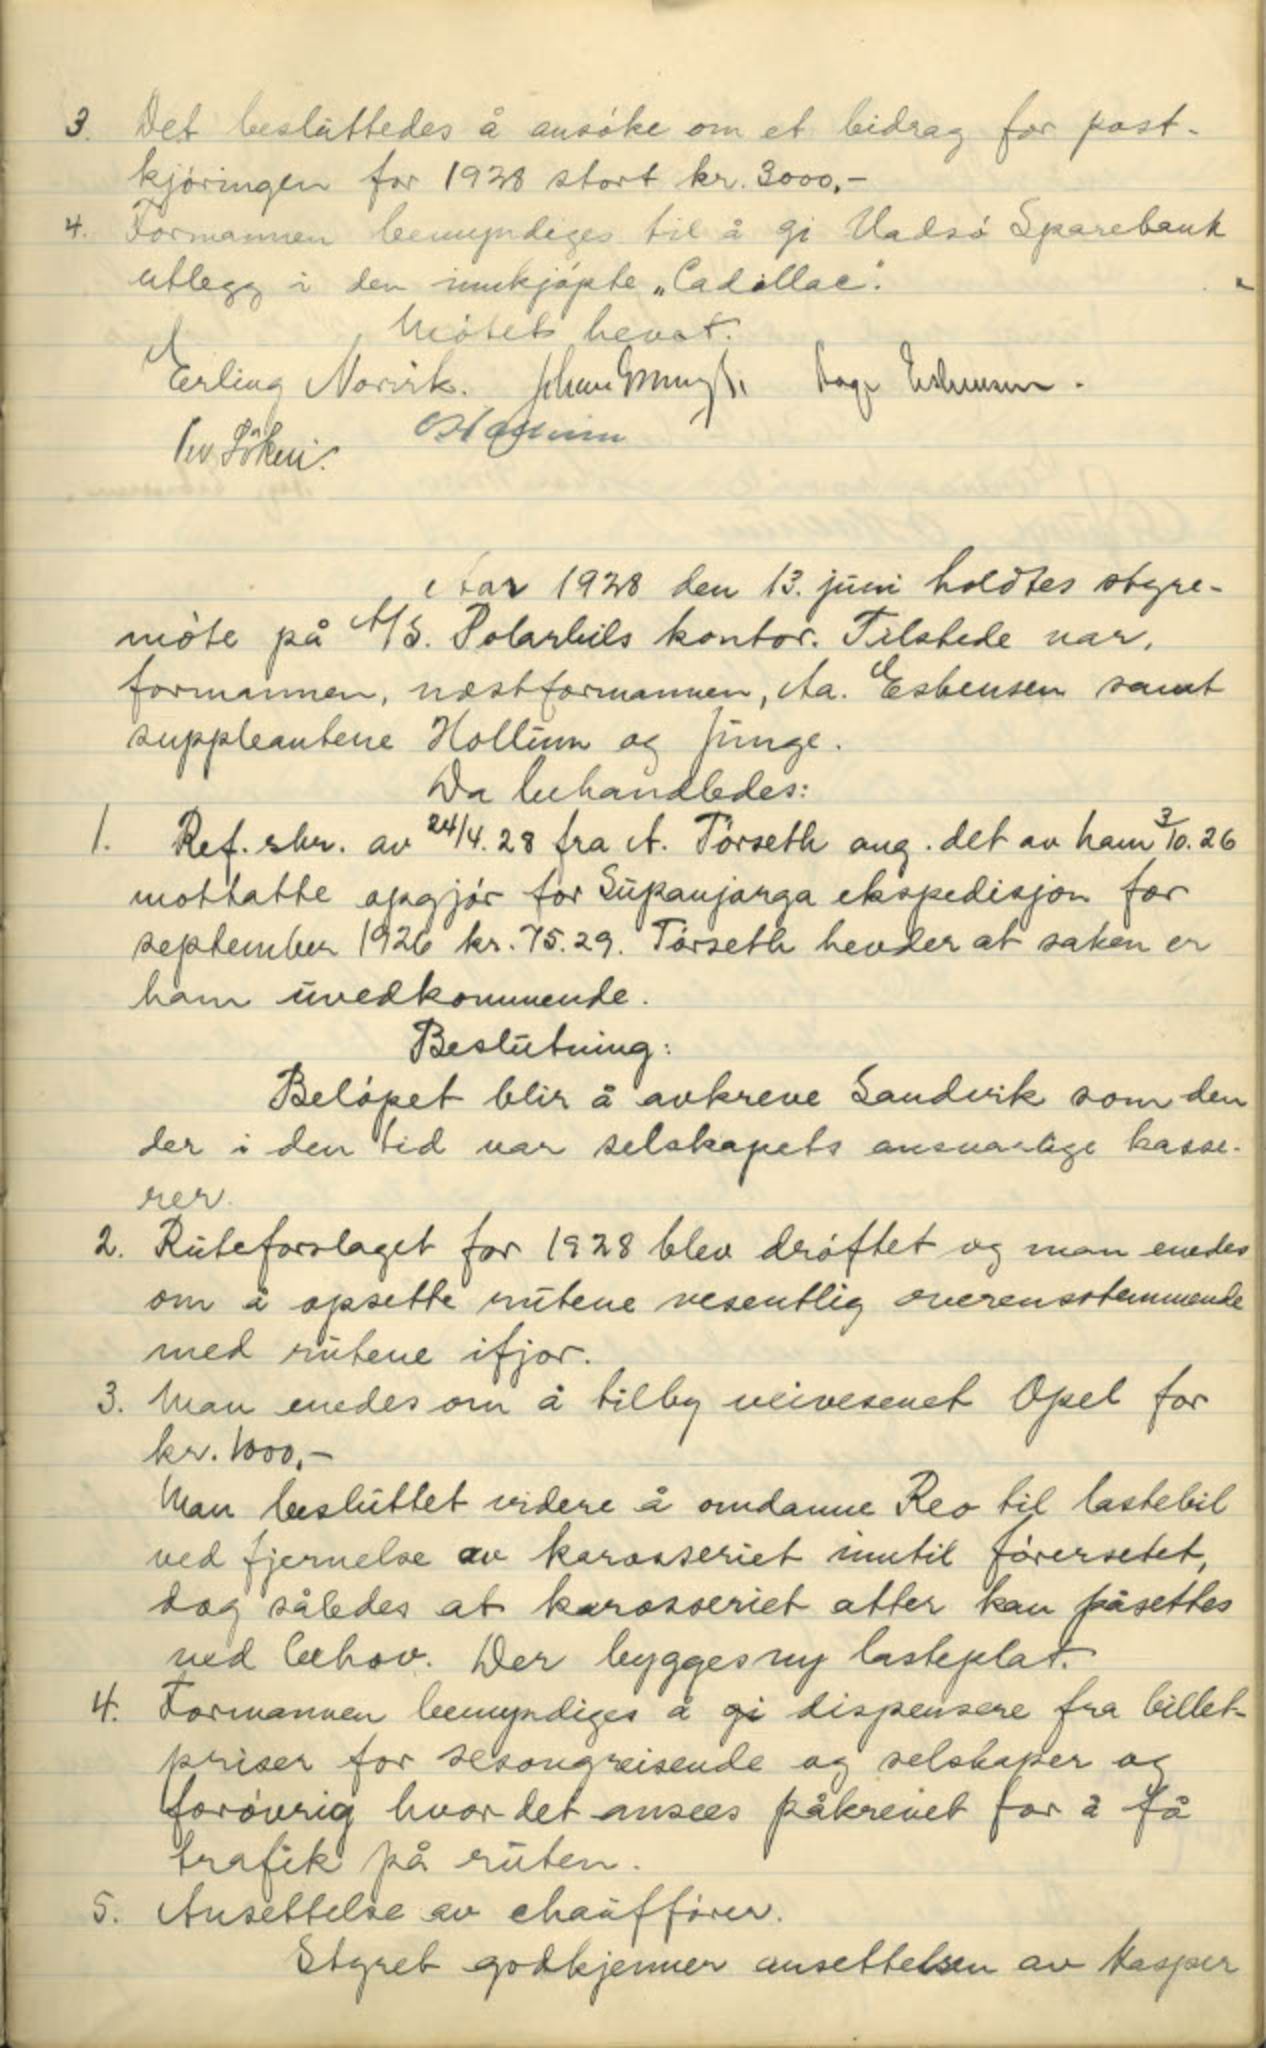 3. Det besluttedes å ansøke om et bidrag for post-
kjøringen for 1928 stort kr. 3000,-
4. Formannen bemyndiges til å gi Vadsø Sparebank
utlegg i den innkjøpte „Cadillac".
Møtet hevet.
Erling Norvik. Aage Esbensen.
Aar 1928 den 13. juni holdtes styre-
møte på A/S. Polarbils kontor. Tilstede var.
formannen, næstformannen, Aa. Esbensen samt
suppleantene Hollum og Junge.
Da behandledes:
1. Ref. skr. av 24/4.28 fra A. Tørseth ang. det av ham 3/10.26
mottatte opgjør for Supanjarga ekspedisjon for
september 1926 kr. 75.29. Tørseth hevder at saken er
ham uvedkommende.
Beslutning:
Beløpet blir å avkreve Sandvik som den
der i den tid var selskapets ansvarlige kasse-
rer.
2. Ruteforslaget for 1928 blev drøftet og man enedes
om å opsette rutene vesentlig overensstemmende
med rutene ifjor.
3. Man enedes om å tilby veivesenet Opel for
kr. 1000,-
Man besluttet videre å omdanne Reo til lastebil
ved fjernelse av karosseriet inntil førersetet,
dog således at karosseriet atter kan påsettes
ved behov. Der bygges ny lasteplat.
4. Formannen bemyndiges å gi dispensere fra billet-
priser for sesongreisende og selskaper og
forøvrig hvor det ansees påkrevet for å få
trafik på ruten.
5. Ansettelse av chauffører.
Styret godkjenner ansettelsen av Kasper